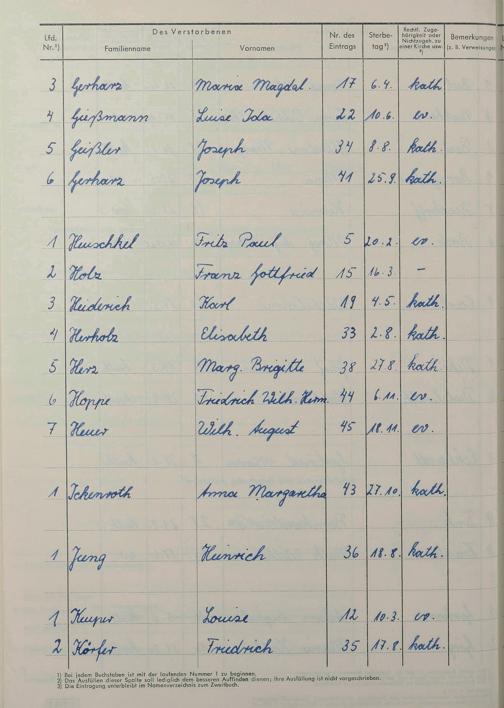 Lfd. Nr.¹) Des Verstorbenen Familienname Vornamen Nr. des Eintrags Sterbetag²) Rechtl. Zugehörigkeit oder Nichtzugeh. zu einer Kirche usw. ³) Bemerkungen (z. B. Verweisungen
3 Gerharz Maria Magdal. 17 6.4. kath.
4 Gießmann Luise Ida 22 10.6. ev.
5 Geißler Joseph 34 8.8. kath.
6 Gerharz Joseph 41 25.9. kath.
1 Heuschkel Fritz Paul 5 20.2. ev.
2 Holz Franz Gottfried 15 16.3 –
3 Heiderich Karl 19 4.5. kath.
4 Herholz Elisabeth 33 2.8. kath.
5 Herz Marg. Brigitte 38 27.8. kath.
6 Hoppe Friedrich Wilh. Herm. 44 6.11. ev.
7 Heuer Wilh. August 45 18.11. ev.
1 Ickenroth Anna Margaretha 43 27.10. kath.
1 Jung Heinrich 36 18.8. kath.
1 Louise 12 10.3. ev.
2 Körfer Friedrich 35 17.8. kath.
1) Bei jedem Buchstaben ist mit der laufenden Nummer 1 zu beginnen.
2) Das Ausfüllen dieser Spalte soll lediglich dem besseren Auffinden dienen; ihre Ausfüllung ist nicht vorgeschrieben.
3) Die Eintragung unterbleibt im Namenverzeichnis zum Zweitbuch.